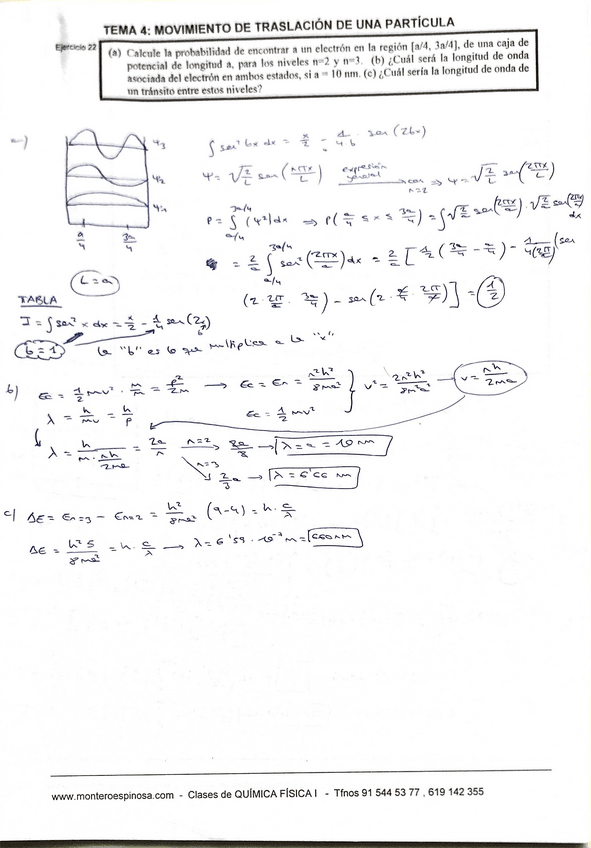 TEMA 4: MOVIMIENTO DE TRASLACIÓN DE UNA PARTÍCULA
Ejercicio 22
(a) Calcule la probabilidad de encontrar a un electrón en la región [a/4, 3a/4], de una caja de
potencial de longitud a, para los niveles n=2 y n=3. (b) ¿Cuál será la longitud de onda
asociada del electrón en ambos estados, si a = 10 nm. (c) ¿Cuál sería la longitud de onda de
un tránsito entre estos niveles?
a)
ψ3
ψ2
ψ1
a/4 3a/4
L=a
∫ sen² bx dx = x/2 - 1/4·b · sen (2bx)
ψ = √2/L sen (nπx/L) expresión general con n=2 ⇒ ψ = √2/L sen (2πx/L)
P = ∫a/4 3a/4 (ψ²) dx ⇒ P(a/4 ≤ x ≤ 3a/4) = ∫ √2/a sen(2πx/a) · √2/a sen(2πx/a) dx
= 2/a ∫a/4 3a/4 sen² (2πx/a) dx = 2/a [ 1/2 (3a/4 - a/4) - 1/4(2π/a) (sen
(2 · 2π/a · 3a/4) - sen (2 · a/4 · 2π/a) ] = 1/2
TABLA
I = ∫ sen² x dx = x/2 - 1/4 sen (2x)
b=1 la "b" es lo que multiplica a la "x"
b) Ec = 1/2 mv² · m/m = p²/2m → Ec = En = n²h²/8ma² } v² = 2n²h²/8m²a² → v = nh/2ma
λ = h/mv = h/p Ec = 1/2 mv²
λ = h/m · nh/2ma = 2a/n n=2 → 2a/2 → λ = a = 10 nm
n=3 → 2/3 a → λ = 6'66 nm
c) ΔE = En=3 - En=2 = h²/8ma² (9-4) = h · c/λ
ΔE = h² 5/8ma² = h · c/λ → λ = 6'59 · m = 660 nm
www.monteroespinosa.com - Clases de QUÍMICA FÍSICA I - Tfnos 91 544 53 77 , 619 142 355